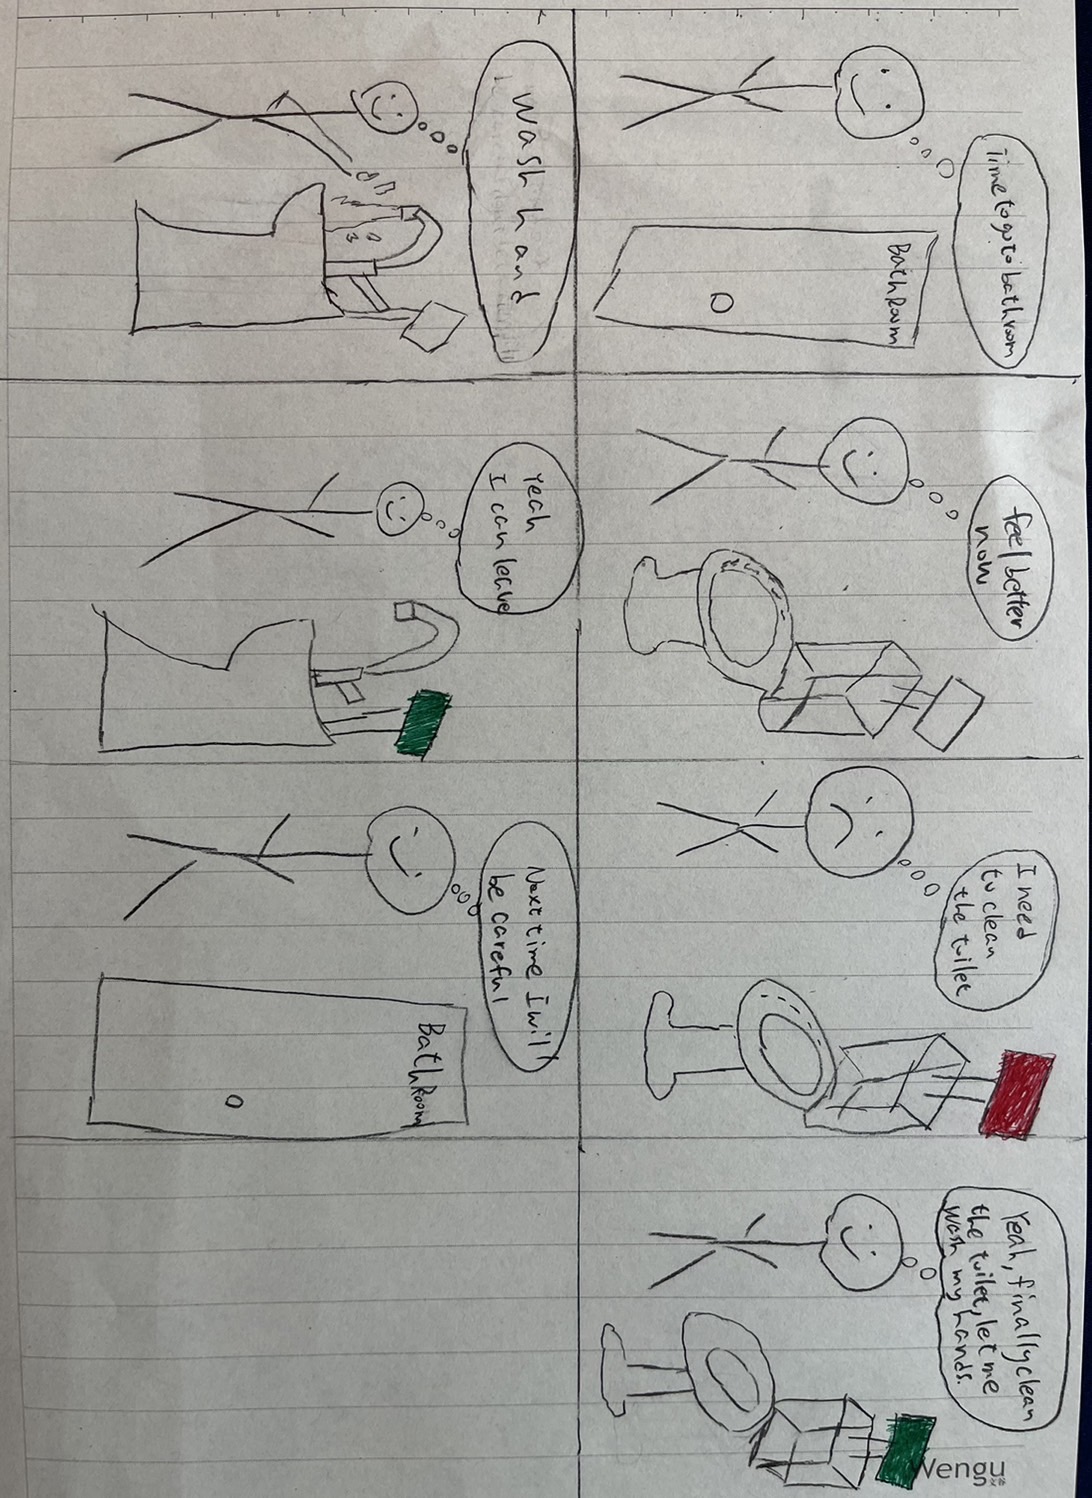 Time to go to bathroom
BathRoom
feel better
now
I need
to clean
the toilet
Yeah, finally clean
the toilet, let me
wash my hands.
wash hand
Yeah
I can leave
Next time I will
be careful
BathRoom
Wengu